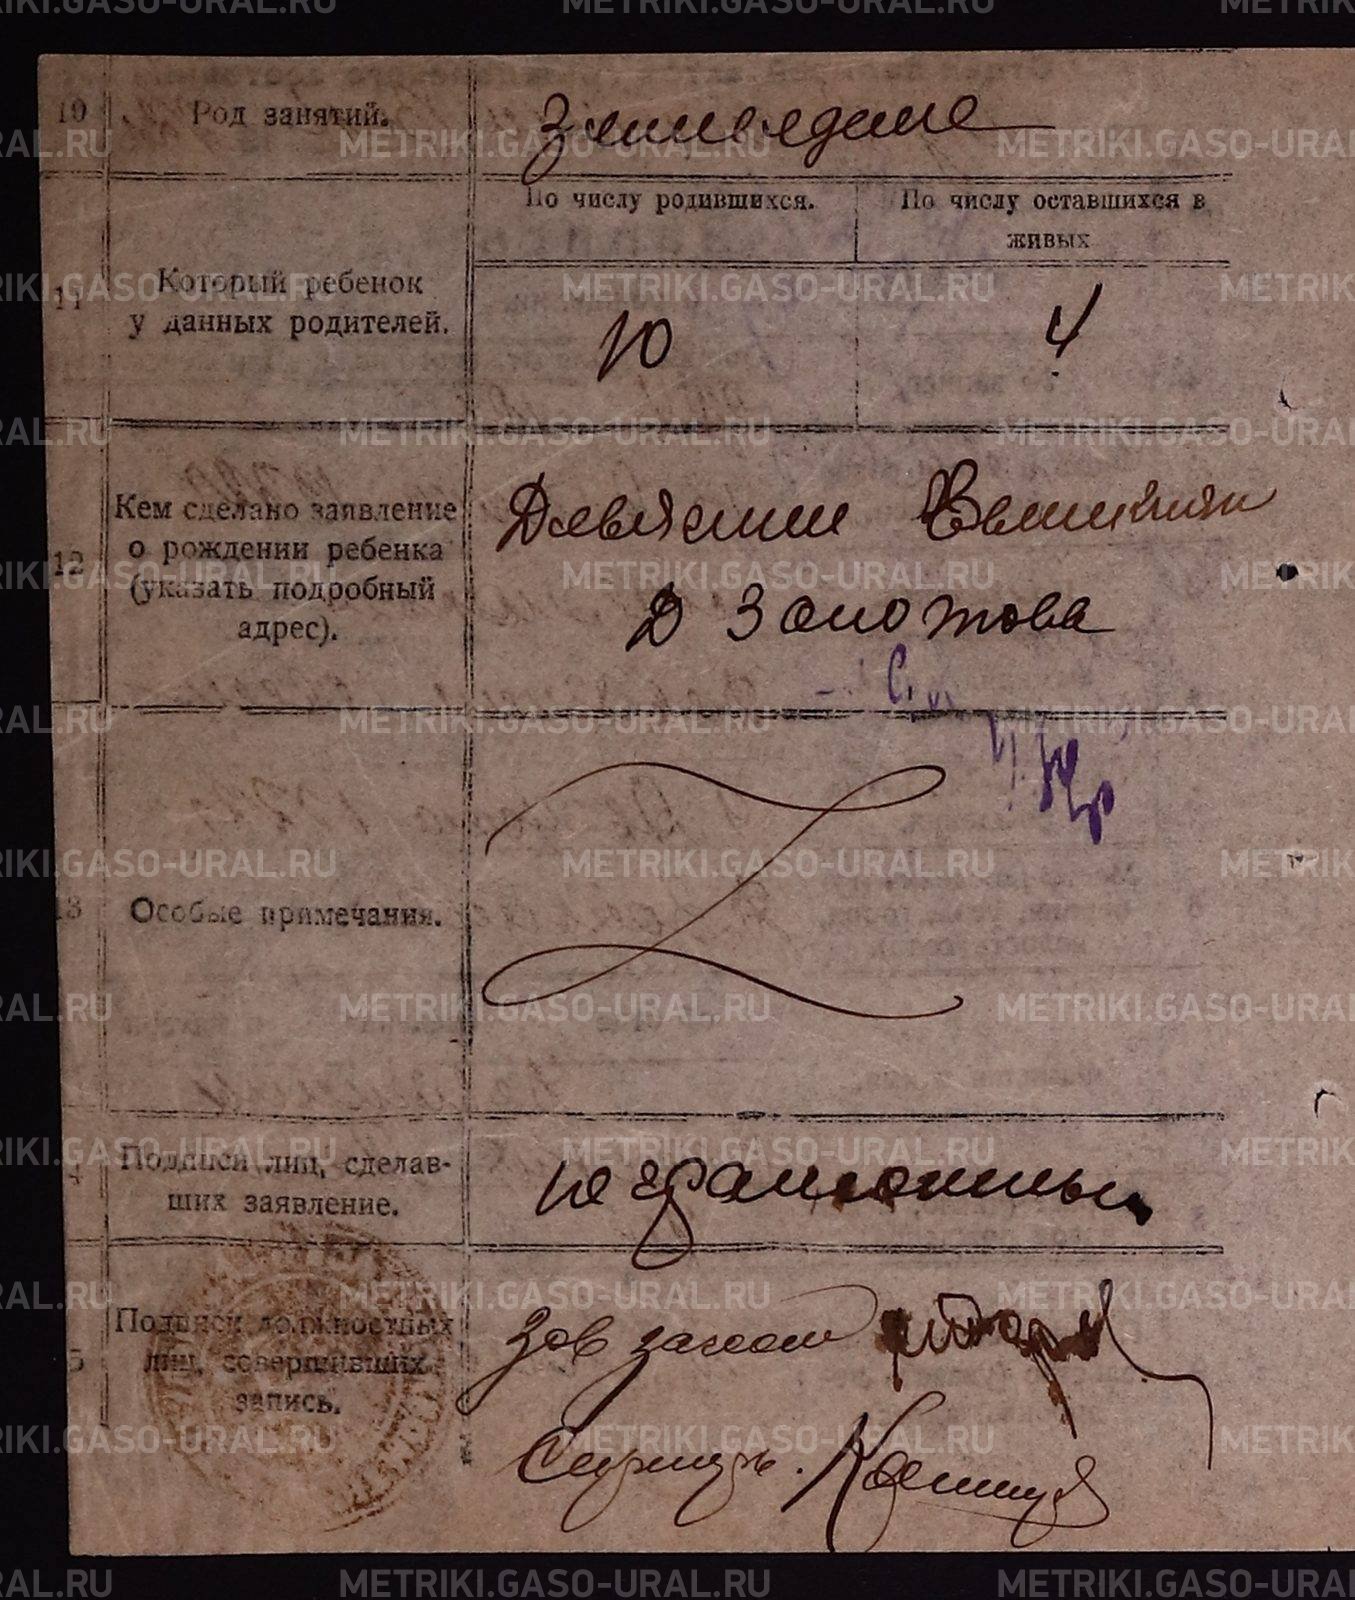 10 Род занятий. Земледелие
11 Который ребенок у данных родителей.
По числу родившихся. По числу оставшихся в живых
10 4
12 Кем сделано заявление
о рождении ребенка
(указать подробный
адрес).
Девяткин
Д Золотова
13 Особые примечания.
Подписи лиц, сделав-
ших заявление.
неграмотный
Подписи должностных
лиц, совершивших
запись.
Зав загсом
METRIKI.GASO-URAL.RU